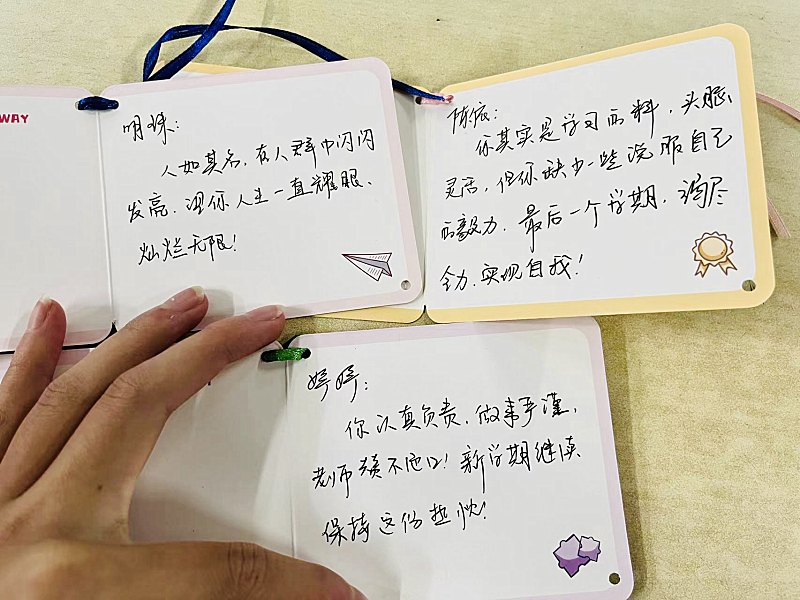 WAY
明珠:
人如其名,在人群中闪闪
发亮.望你人生一直耀眼、
灿烂无限!
陈依:
你其实是学习的料,头脑
灵活,但你缺少一些说服自己
的毅力.最后一个学期,竭尽
全力.实现自我!
婷婷:
你认真负责.做事严谨,
老师赞不绝口!新学期继续
保持这份热忱!